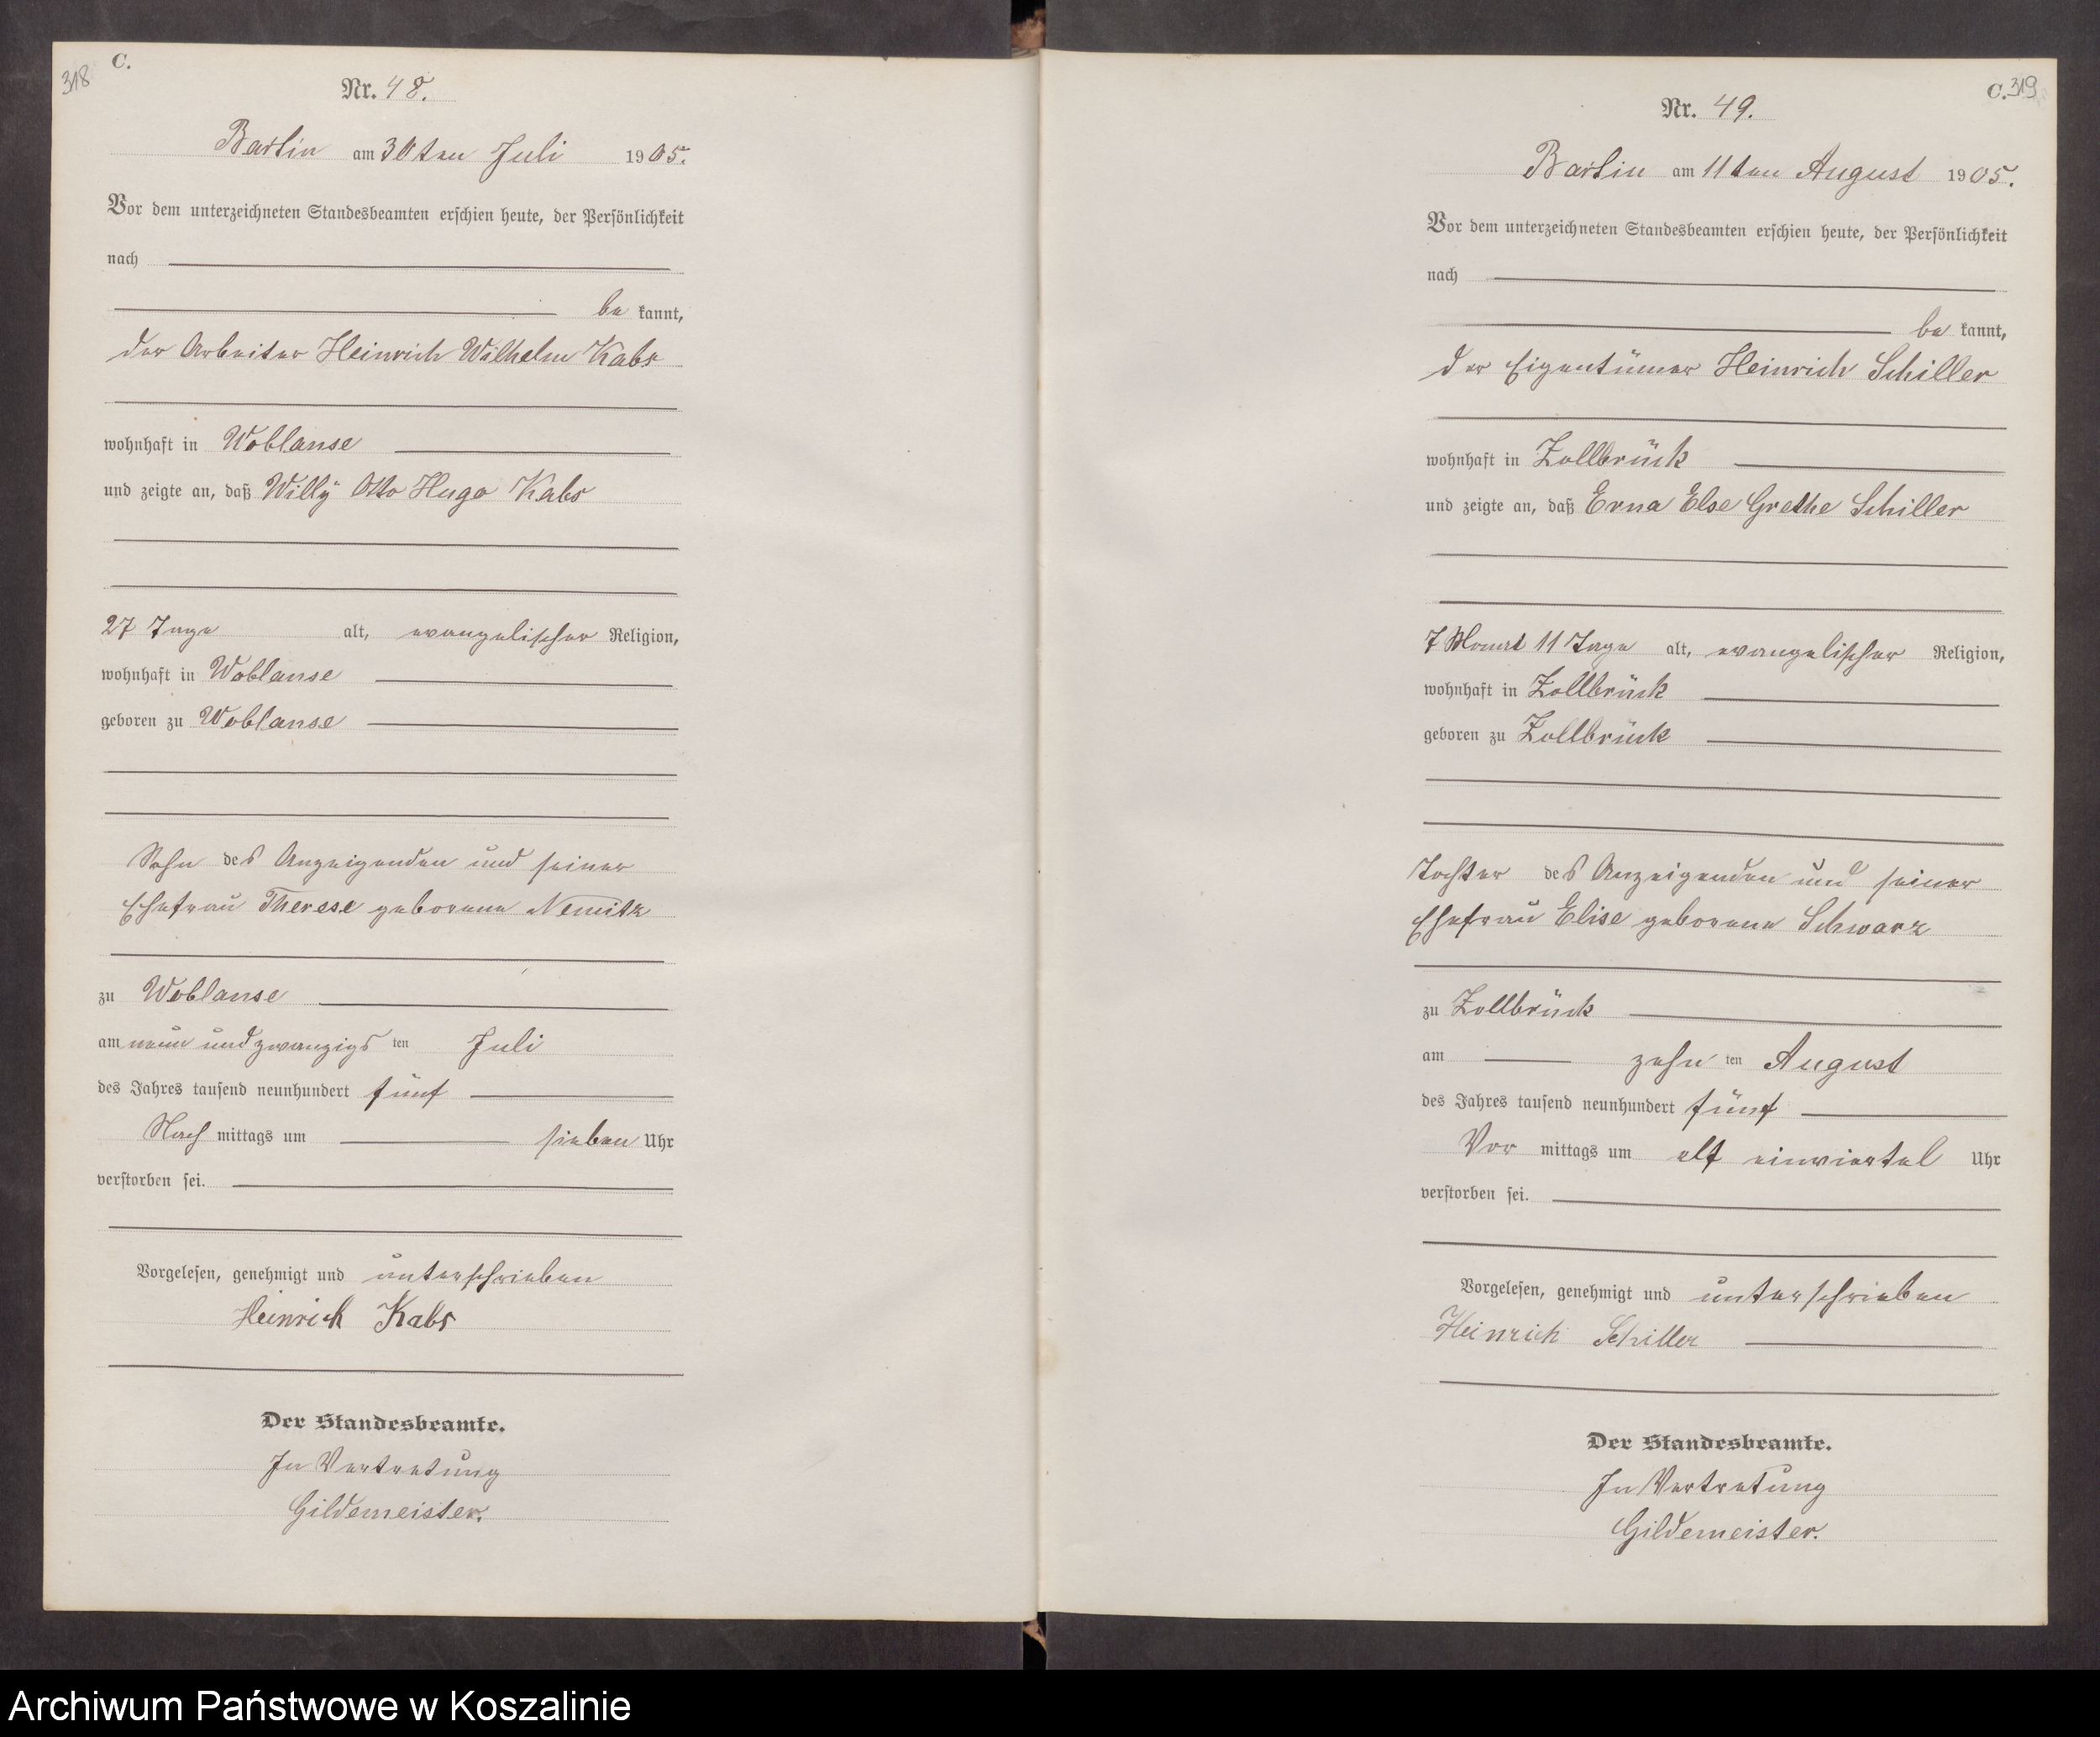 318
C.
Nr. 48.
Bartin am 30ten Juli 1905.
Vor dem unterzeichneten Standesbeamten erschien heute, der Persönlichkeit
nach
be kannt,
der Arbeiter Heinrich Wilhelm Kabs
wohnhaft in Woblanse
und zeigte an, daß Willy Otto Hugo Kabs
27 Tage alt, evangelischer Religion,
wohnhaft in Woblanse
geboren zu Woblanse
Sohn des Anzeigenden und seiner
Ehefrau Therese geborene Nemitz
zu Woblanse
am neun und zwanzigs ten Juli
des Jahres tausend neunhundert fünf
Nach mittags um sieben Uhr
verstorben sei.
Vorgelesen, genehmigt und unterschrieben
Heinrich Kabs
Der Standesbeamte.
In Vertretung
Gildemeister.
C. 319
Nr. 49.
Bartin am 11ten August 1905.
Vor dem unterzeichneten Standesbeamten erschien heute, der Persönlichkeit
nach
be kannt,
der Eigentümer Heinrich Schiller
wohnhaft in Zollbrück
und zeigte an, daß Erna Else Grethe Schiller
7 Monat 11 Tage alt, evangelischer Religion,
wohnhaft in Zollbrück
geboren zu Zollbrück
Tochter des Anzeigenden und seiner
Ehefrau Elise geborene Schwarz
zu Zollbrück
am zehn ten August
des Jahres tausend neunhundert fünf
Vor mittags um elf einviertel Uhr
verstorben sei.
Vorgelesen, genehmigt und unterschrieben
Heinrich Schiller
Der Standesbeamte.
In Vertretung
Gildemeister.
Archiwum Państwowe w Koszalinie